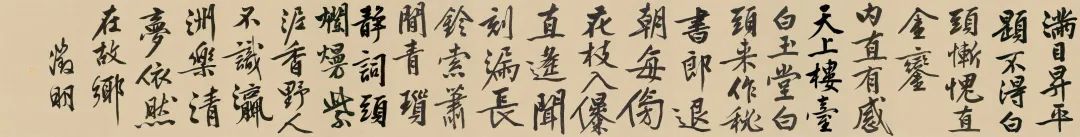 滿目昇平
題不得白
頭慚愧直
金鑾
內直有感
天上樓臺
白玉堂白
頭来作秘
書郎退
朝每傍
花枝入儤
直遙聞
刻漏長
鈴索蕭
閒青瑣
靜詞頭
爛熳紫
泥香野人
不識瀛
洲樂清
夢依然
在故鄉
徵明